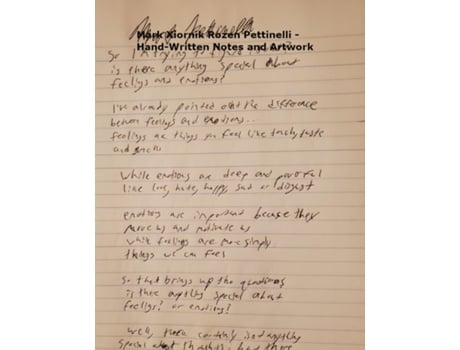 Mark Pettinelli
Mark Xiornik Rozen Pettinelli -
Hand-Written Notes and Artwork
So I'm trying to
is there anything special about
feelings and emotions?
I've already pointed out the difference
between feelings and emotions..
feelings are things you feel like touch, taste
and smell
While emotions are deep and powerful
like love, hate, happy, sad or disgust
emotions are important because they
move us and motivate us
while feelings are more simply
things we can feel
So that brings up the questions
is there anything special about
feelings? or emotions?
well, there certainly isnt anything
special about